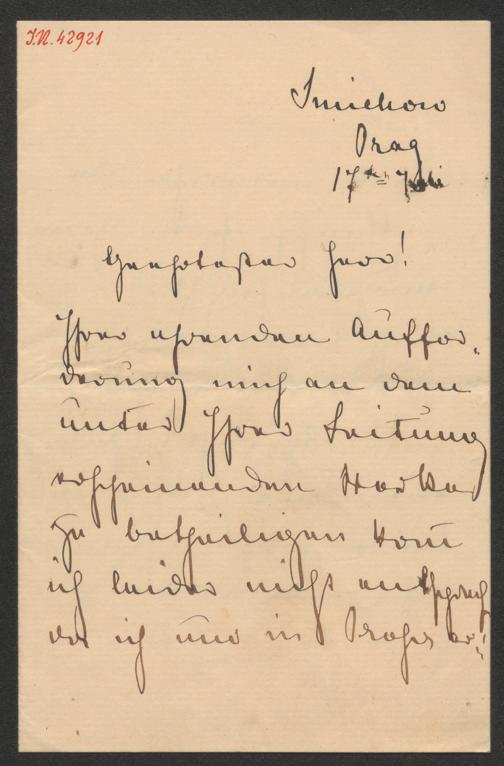 I.N. 42921
Smichow
Prag
17te Juli
Geehrtester Herr!
Ihrer ehrenden Auffor-
derung mich an dem
unter Ihrer Leitung
erscheinenden Werke
zu betheiligen kann
ich leider nicht entsprech
da ich nur in